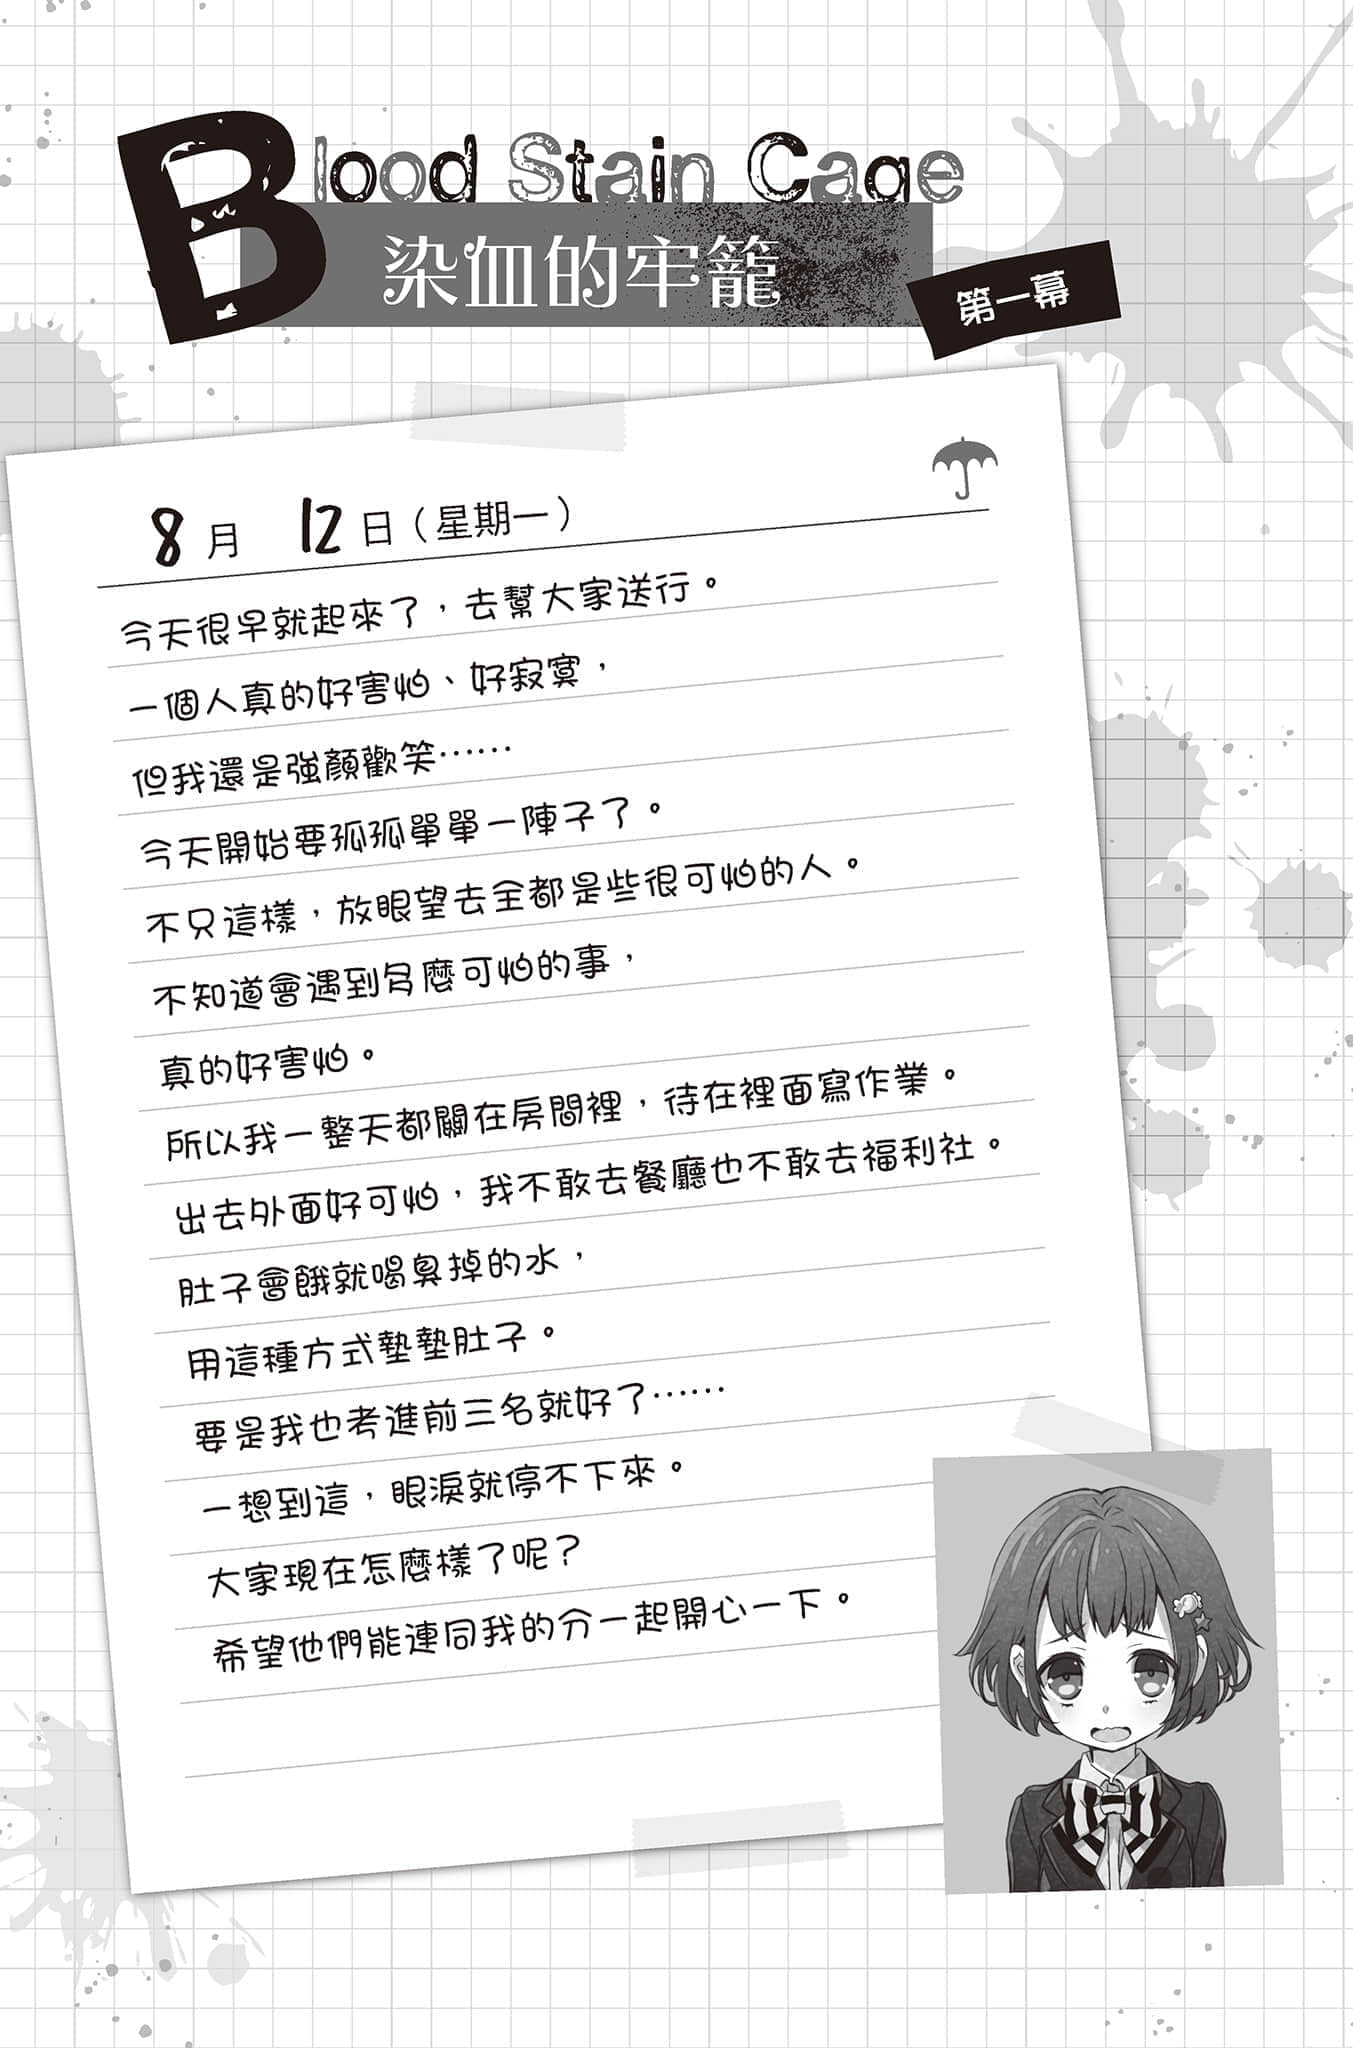 Blood Stain Cage
染血的牢籠
第一幕
8月 12日（星期一）
今天很早就起來了，去幫大家送行。
一個人真的好害怕、好寂寞，
但我還是強顏歡笑……
今天開始要孤孤單單一陣子了。
不只這樣，放眼望去全都是些很可怕的人。
不知道會遇到多麼可怕的事，
真的好害怕。
所以我一整天都關在房間裡，待在裡面寫作業。
出去外面好可怕，我不敢去餐廳也不敢去福利社。
肚子會餓就喝臭掉的水，
用這種方式墊墊肚子。
要是我也考進前三名就好了……
一想到這，眼淚就停不下來。
大家現在怎麼樣了呢？
希望他們能連同我的份一起開心一下。